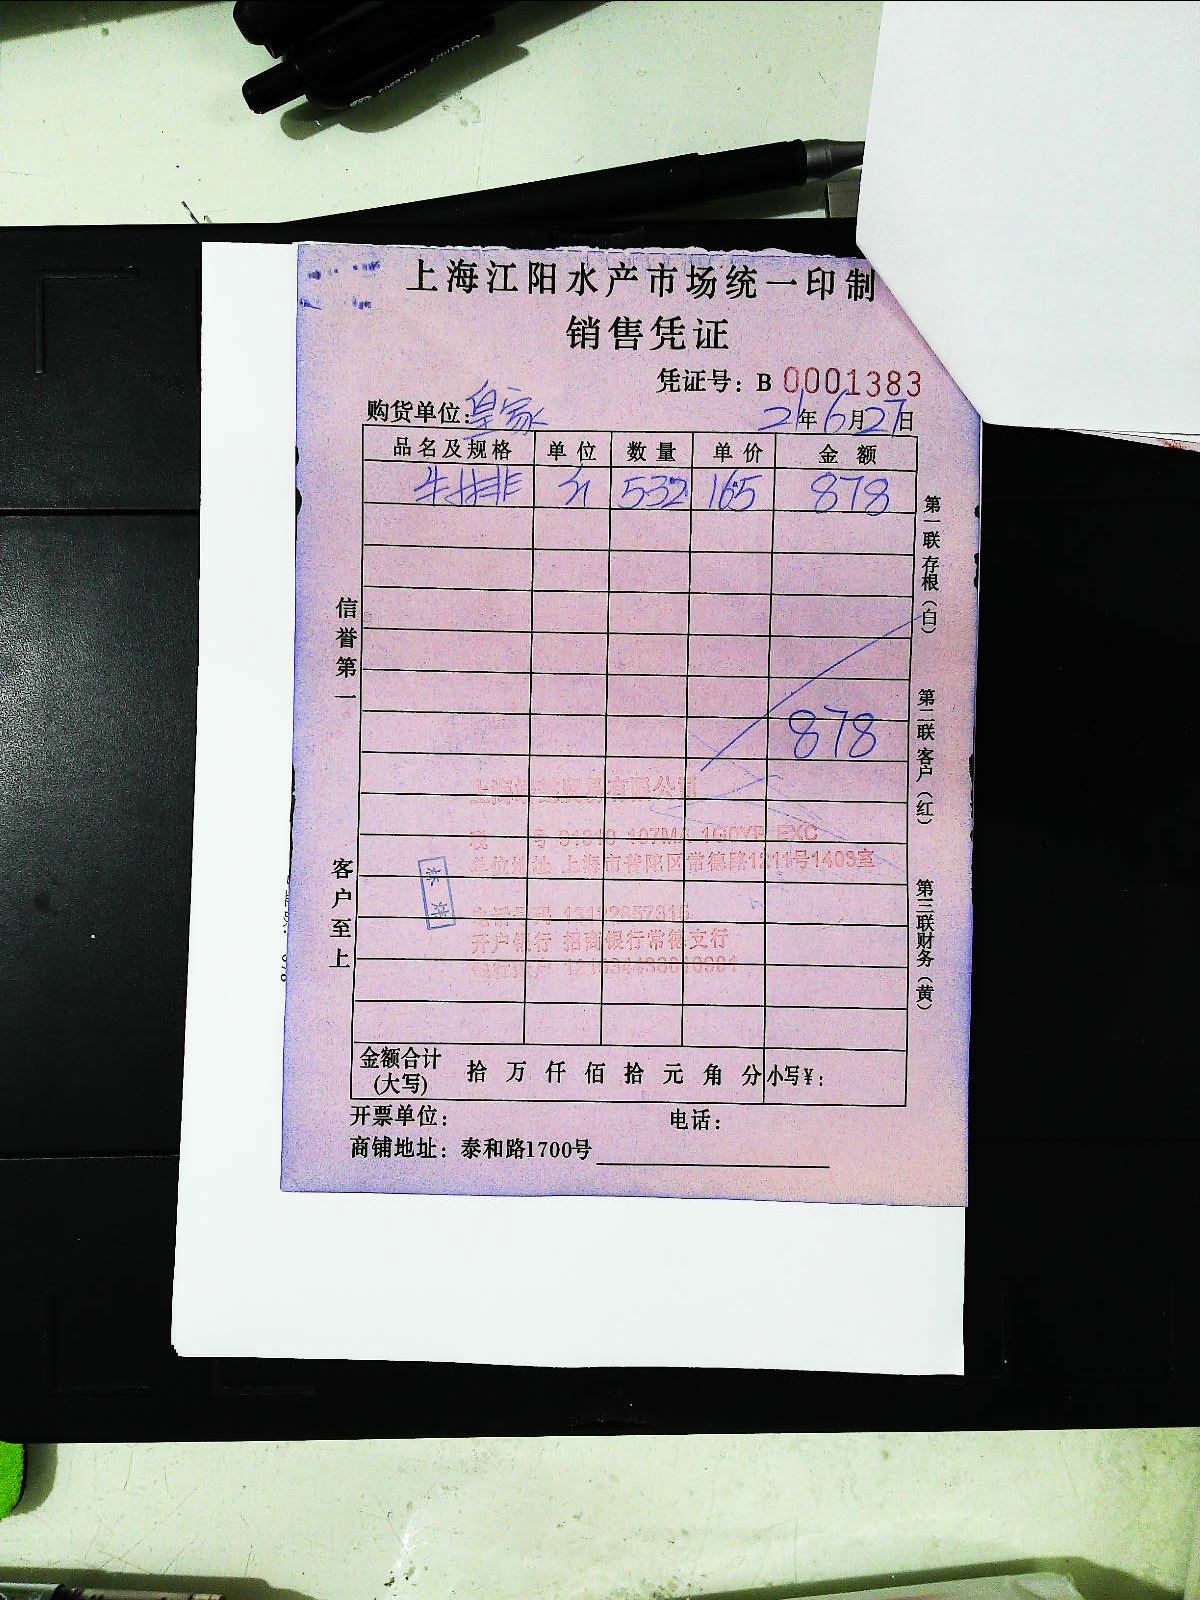 上海江阳水产市场统一印制
销售凭证
凭证号：B 0001383
购货单位：皇家 21年6月27日
品名及规格 单位 数量 单价 金额
牛排 斤 532 165 878
878
信誉第一
客户至上
第一联 存根（白）
第二联 客户（红）
第三联 财务（黄）
单位地址 上海市普陀区常德路1211号1403室
开户银行 招商银行常德支行
金额合计(大写) 拾 万 仟 佰 拾 元 角 分 小写¥：
开票单位： 电话：
商铺地址：泰和路1700号